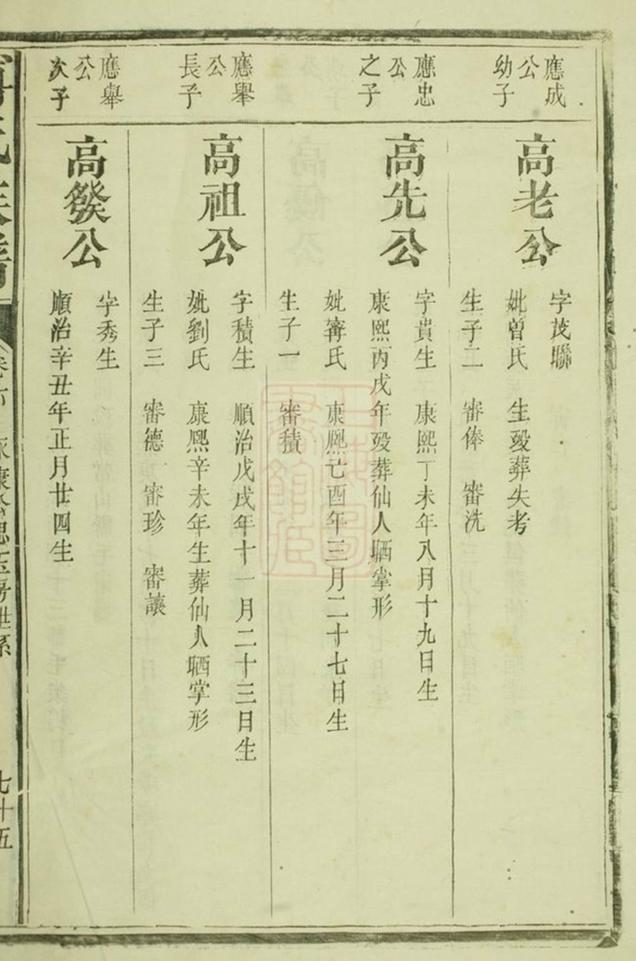 應成公幼子
高老公
字茂聯
妣曾氏 生歿葬失考
生子二 審俸 審洗
應忠公之子
高先公
字貴生 康熙丁未年八月十九日生
康熙丙戌年歿葬仙人晒掌形
妣甯氏 康熙己酉年三月二十七日生
生子一 審積
應舉公長子
高祖公
字積生 順治戊戌年十一月二十三日生
妣劉氏 康熙辛未年生葬仙人晒掌形
生子三 審德 審珍 審讓
應舉公次子
高發公
字秀生
順治辛丑年正月廿四生
氏族譜
七十五